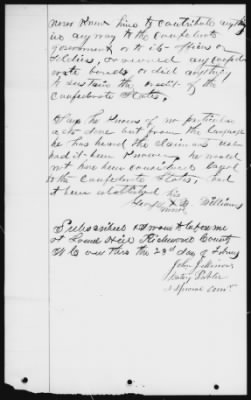 never knew him to contribute anything
in any way to the confederate
government or to its officers or
soldiers, or owned any confed-
erate bonds or did anything
to sustain the credit of the
Confederate States.
Says he knows of no particular
acts done but from the language
he has heard the claimant use
had it been known, he would
not have been considered loyal
to the confederate states, had
it been established his
George X B. Williams
mark
Subscribed & sworn to before me
at Hill Richmond County
N C on this the 23d day of
John
Notary Public
& Special Com'r